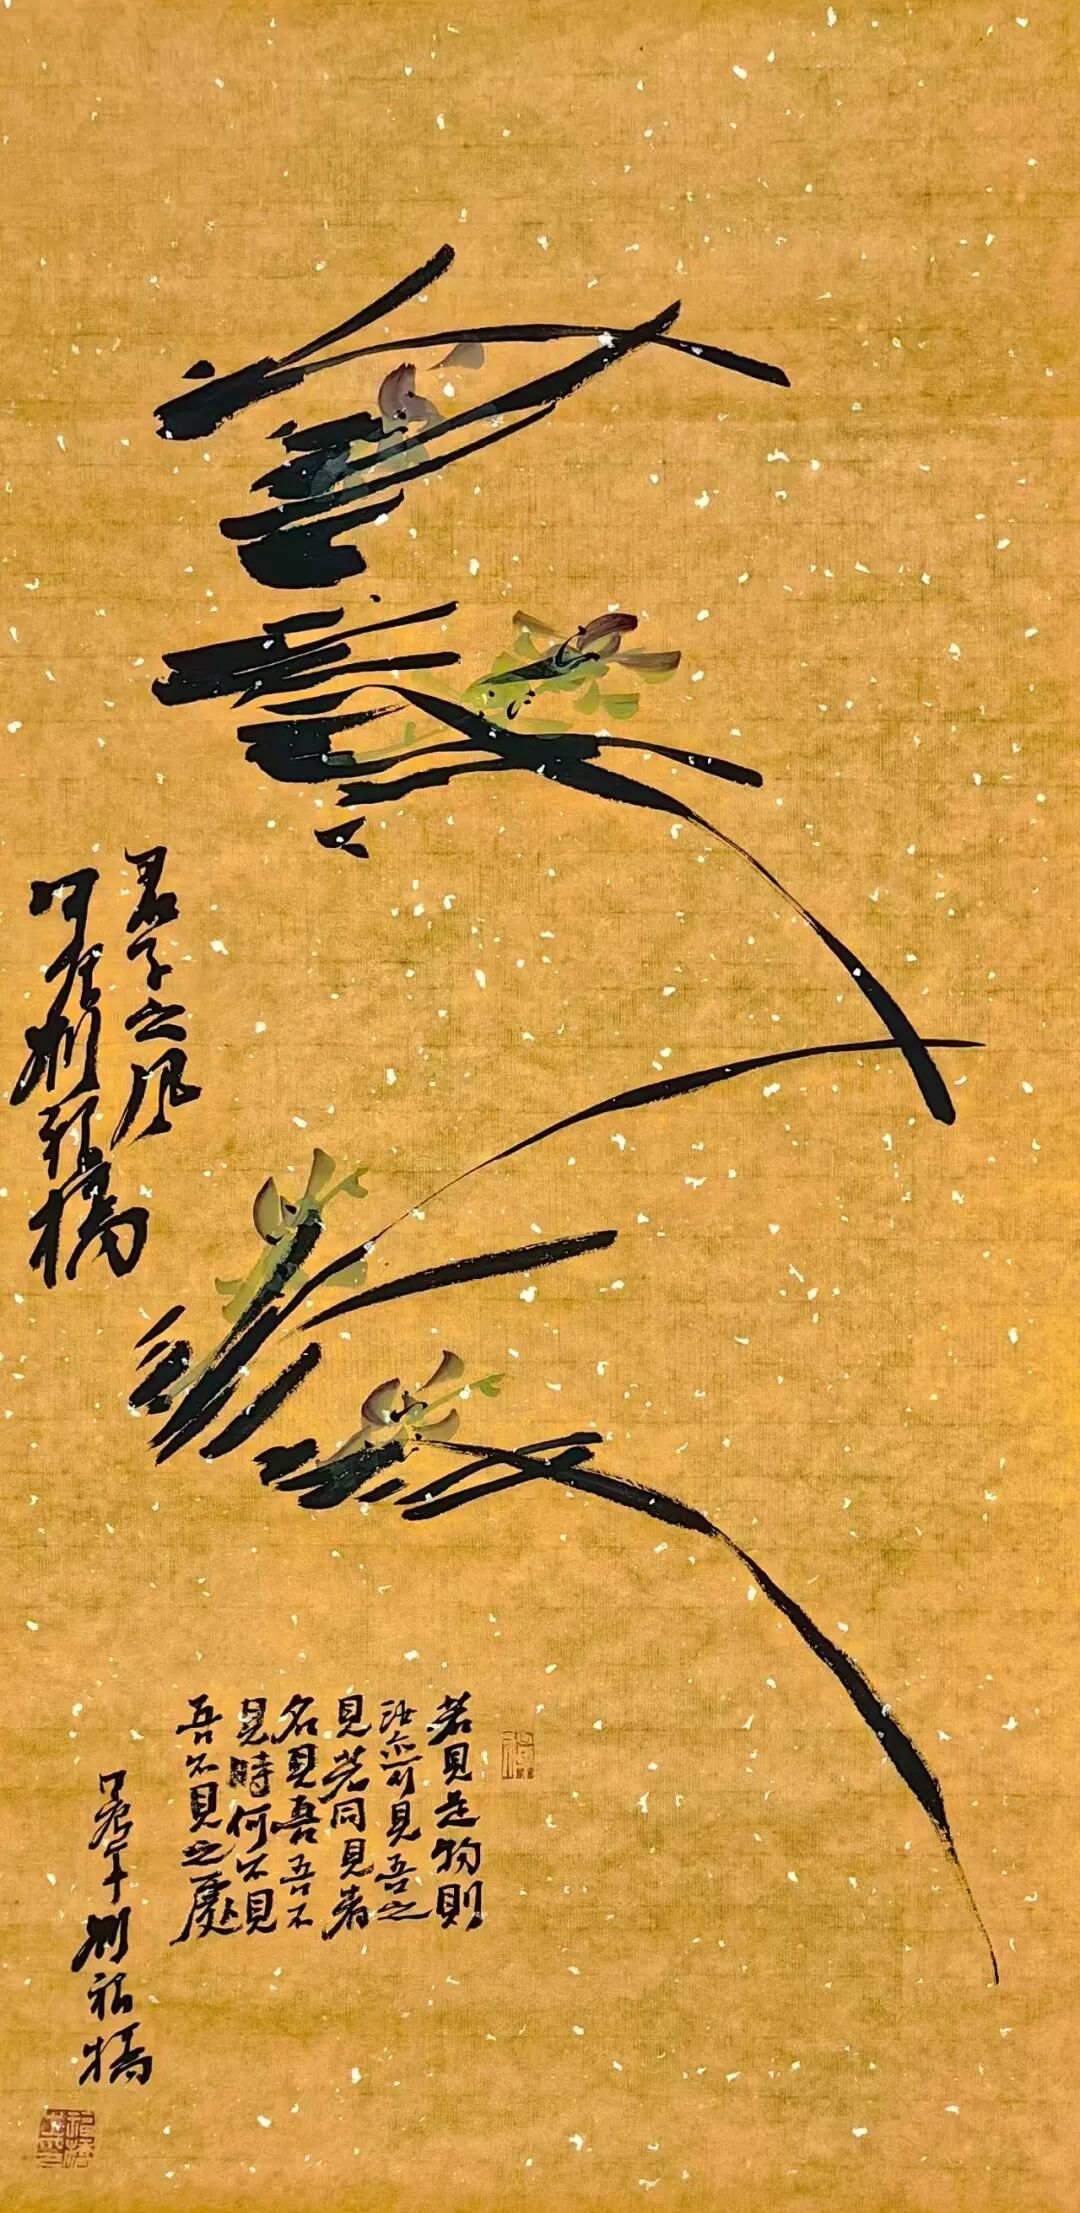 君子之风
甲辰刘橋
若見是物則
汝亦可見吾之
見若同見者
名見吾吾不
見時何不見
吾不見之處
甲辰年刘橋